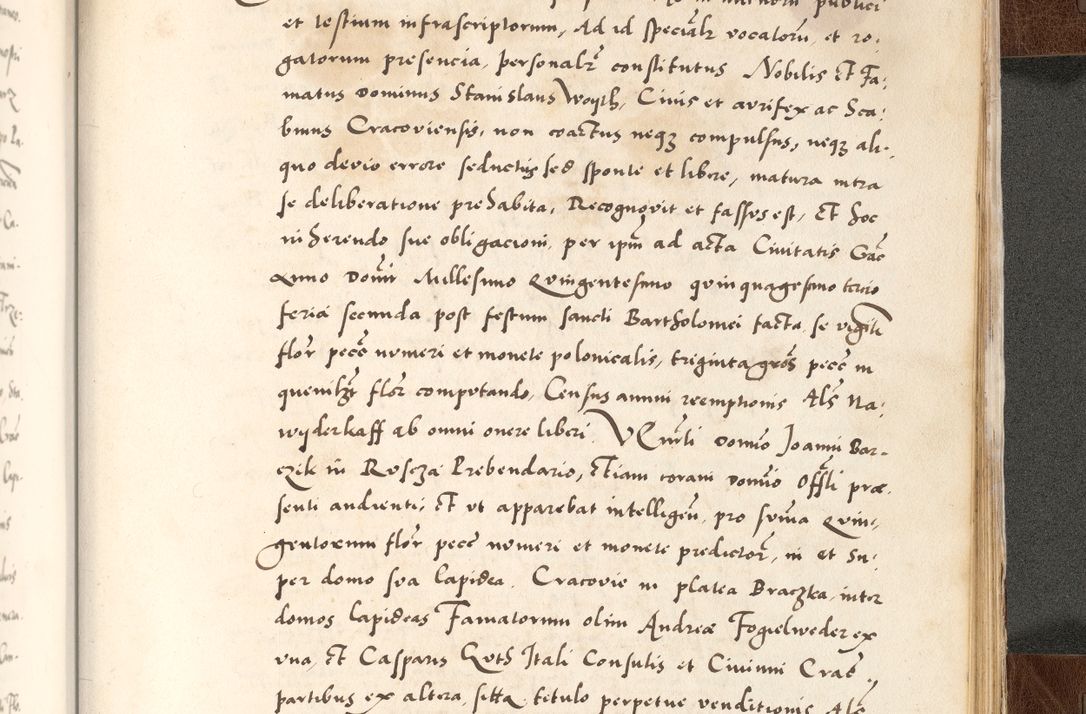 et testium infrascriptorum, Ad id specialr vocatoru, et ro,
gatorum presencia, personalr constitutus Nobilis et Fa,
matus Dominus Stanislaus Woyth, Civis et aurifex ac Sca,
binus Cracoviensis, non coactus neqz compulsus, neqz ali-
quo devio errore seductus sed sponte et libere, matura intra
se deliberatione prehabita, Recognovit et fassus est, Et hoc
inherendo sue obligacioni, per ipm ad acta Civitatis Crac
Anno Domi Millesimo Quingentesimo quinquagesimo tercio
feria secunda post festum sancti Bartholomei facta, se viginti
flor pecc numeri et monete polonicalis, triginta gros pecc in
quemlzt flor computando, Census annui reemptionis Als Na,
wyderkaff ab omni onere liberi, Domio Joanni Bar-
czik in Rusczza Prebendario, Etiam coram Domio Offli præ,
senti audienti, Et ut apparebat intelligen, pro suma Quin,
gentorum flor pecc numeri et monete predictor, in et su,
per domo sua lapidea, Cracovie in platea Braczka, inter
domos lapideas Famatorum olim Andreæ Fogielweder ex
una, Et Casparis Guth Itali Consulis et Civium Crac,
partibus ex altera, sitta, titulo perpetue venditionis Als